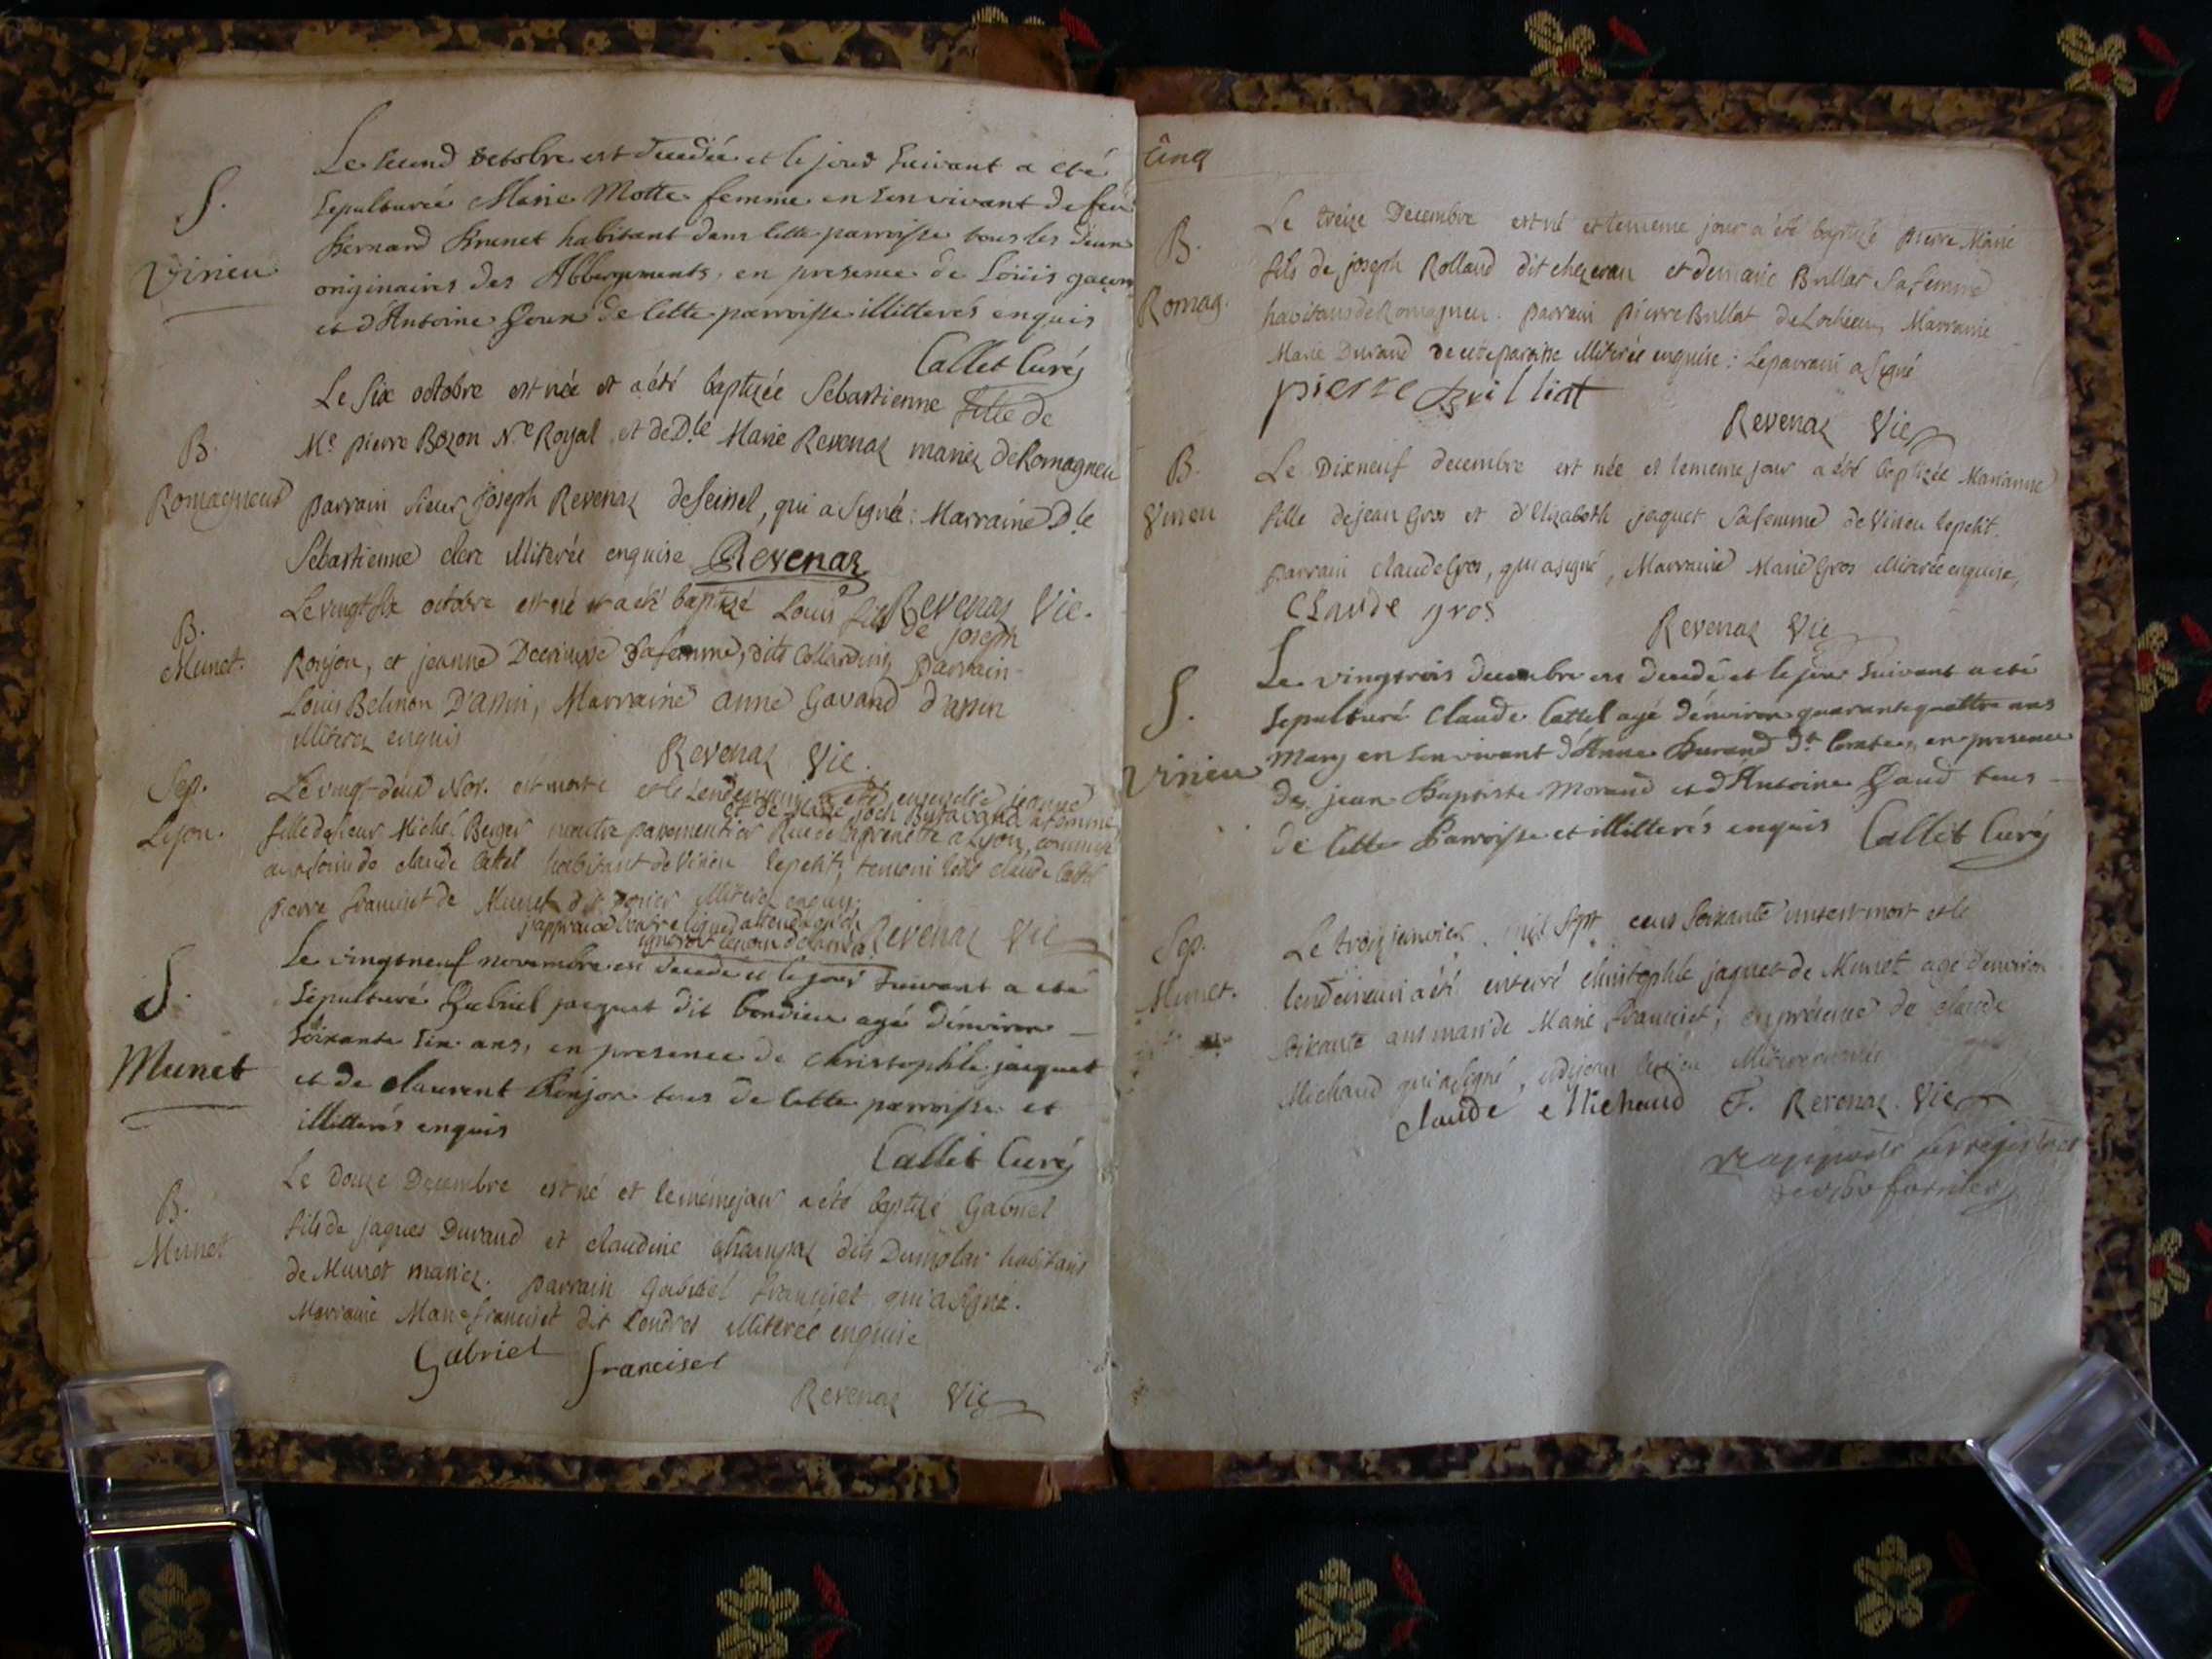 S.
Virieu
Le second octobre est decedée et le jour suivant a eté
sepulturée Marie Motte femme en son vivant de feu
Bernard Brunet habitant dans cette parroisse tous les deux
originaires des Abbergements, en presence de Loüis
et d'Antoine de cette parroisse illitterés enquis
Callet Curé
B.
Romagneud
Le Six octobre est née et a été baptizée Sebastienne fille de
Me pierre Bozon Nre Royal et de Dle Marie Revenaz mariez de Romagneu
parrain sieur Joseph Revenaz de seissel, qui a signé: Marraine Dle
Sebastienne clerc illiterée enquise Revenaz
Revenaz Vic.
B.
Munet.
Le vingt Six octobre est né et a été baptizé Louis fils de joseph
Ronjon, et jeanne sa femme, dits Collardins, parrain
Louis Belinon D'assin, Marraine anne Gavand d'assin
illiterez enquis
Revenaz Vic.
Sep.
Lyon.
Le vingt-deux Nov. est morte et le Lendemain a eté ensevelie jeanne
et de sa femme
fille de sieur Michel Berger a Lyon,
aux soins de claude Cattel habitant de Virieu lepetit; temoins led. claude Cattel
pierre franciset de Munet dit illiterez enquis.
j'approuve l'autre ligne attendu qu'on
ignorot lenom delamere Revenaz Vic
S.
Munet
Le vingtneuf novembre est decedé et le jour suivant a eté
sepulturé Gabriel jacquet dit bondieu agé d'environ
soixante six ans, en presence de christophle jacquet
et de claurent Ronjon tous de cette parroisse et
illitterés enquis
Callet Curé
B.
Munet
Le douze Decembre est né et leméme jour a eté baptizé Gabriel
fils de jaques Durand et claudine Champaz dits Dumolar habitans
de Munet mariez. parrain Gabriel franciset qui a signé.
Marraine Marie franciset dit Londres illiterée enquise
Gabriel francisel
Revenaz Vic
Cinq
B.
Romag.
Le treize Decembre est né et lememe jour a été baptizé pierre Marie
fils de joseph Rolland dit et de marie Brillat sa femme
habitans de Romagneu. parrain pierre Brillat de Lochieu, Marraine
Marie Durand de cete paroisse illiterée enquise: Le parrain a signé
pierre Brilliat
Revenaz Vic
B.
Virieu
Le Dixneuf decembre est née et lememe jour a été baptizée Marianne
fille de jean Gros et d'Elizabeth jaquet sa femme de Virieu lepetit.
parrain claude Gros, qui a signé, Marraine Marie Gros illiterée enquise,
Claude gros
Revenaz Vic
S.
Virieu
Le vingtrois decembre est decedé et le jour suivant a eté
sepulturé Claude Cattel agé d'environ quarantequattre ans
mary en son vivant d'Anne Durand dt Comte, en presence
de jean Baptiste Morand et d'Antoine tous
de cette Parroisse et illitterés enquis Callet Curé
Sep.
Munet.
Le trois janvier mil sept cens soixante un est mort et le
lendemain a été enterré christophle jaquet de Munet agé d'environ
soixante ans mari de Marie franciset; en présence de claude
Michaud qui a signé, illiteré
claude Michaud F. Revenaz Vic